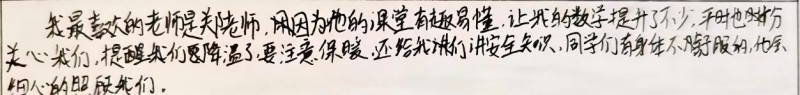 我最喜欢的老师是关陆老师,因为他的课堂有趣易懂,让我的数学提升了不少,平时也十分
关心我们,提醒我们要降温了要注意保暖,还给我们讲安全知识,同学们有身体不舒服的,他会
细心的照顾我们。